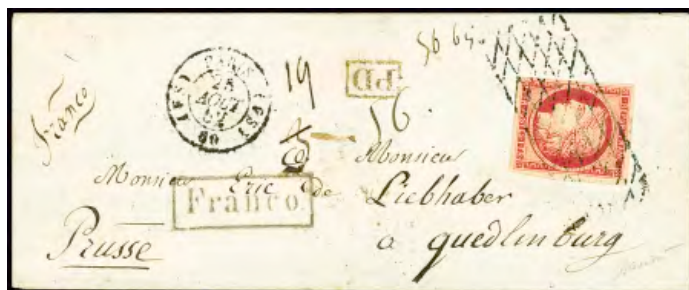 56
Franco
PARIS
25
AOUT
60
19
PD
56
Monsieur
Monsieur Eric de Liebhaber
Franco
Prusse
a quedlenburg